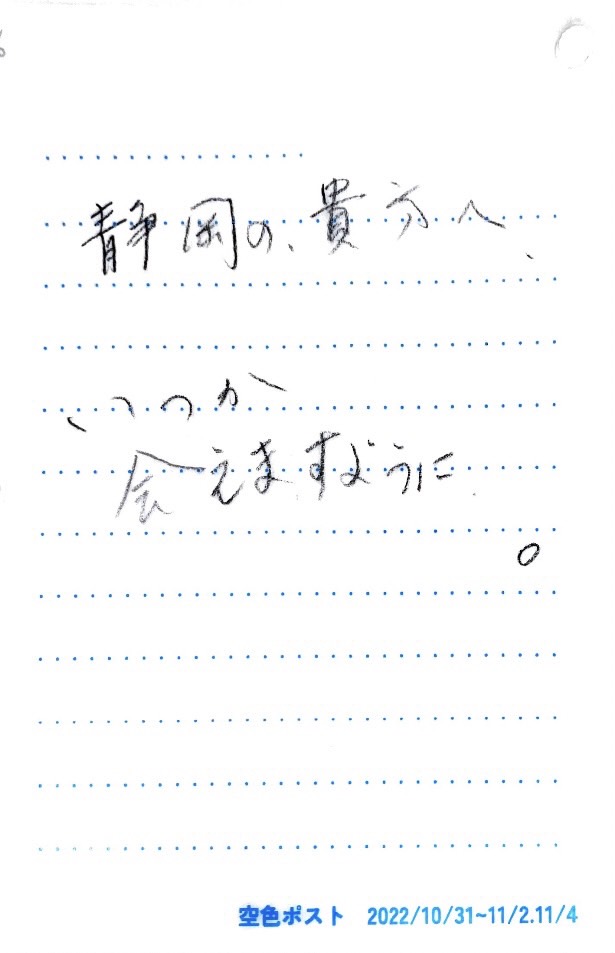 静岡の、貴方へ、
いつか
会えますように
。
空色ポスト 2022/10/31~11/2.11/4